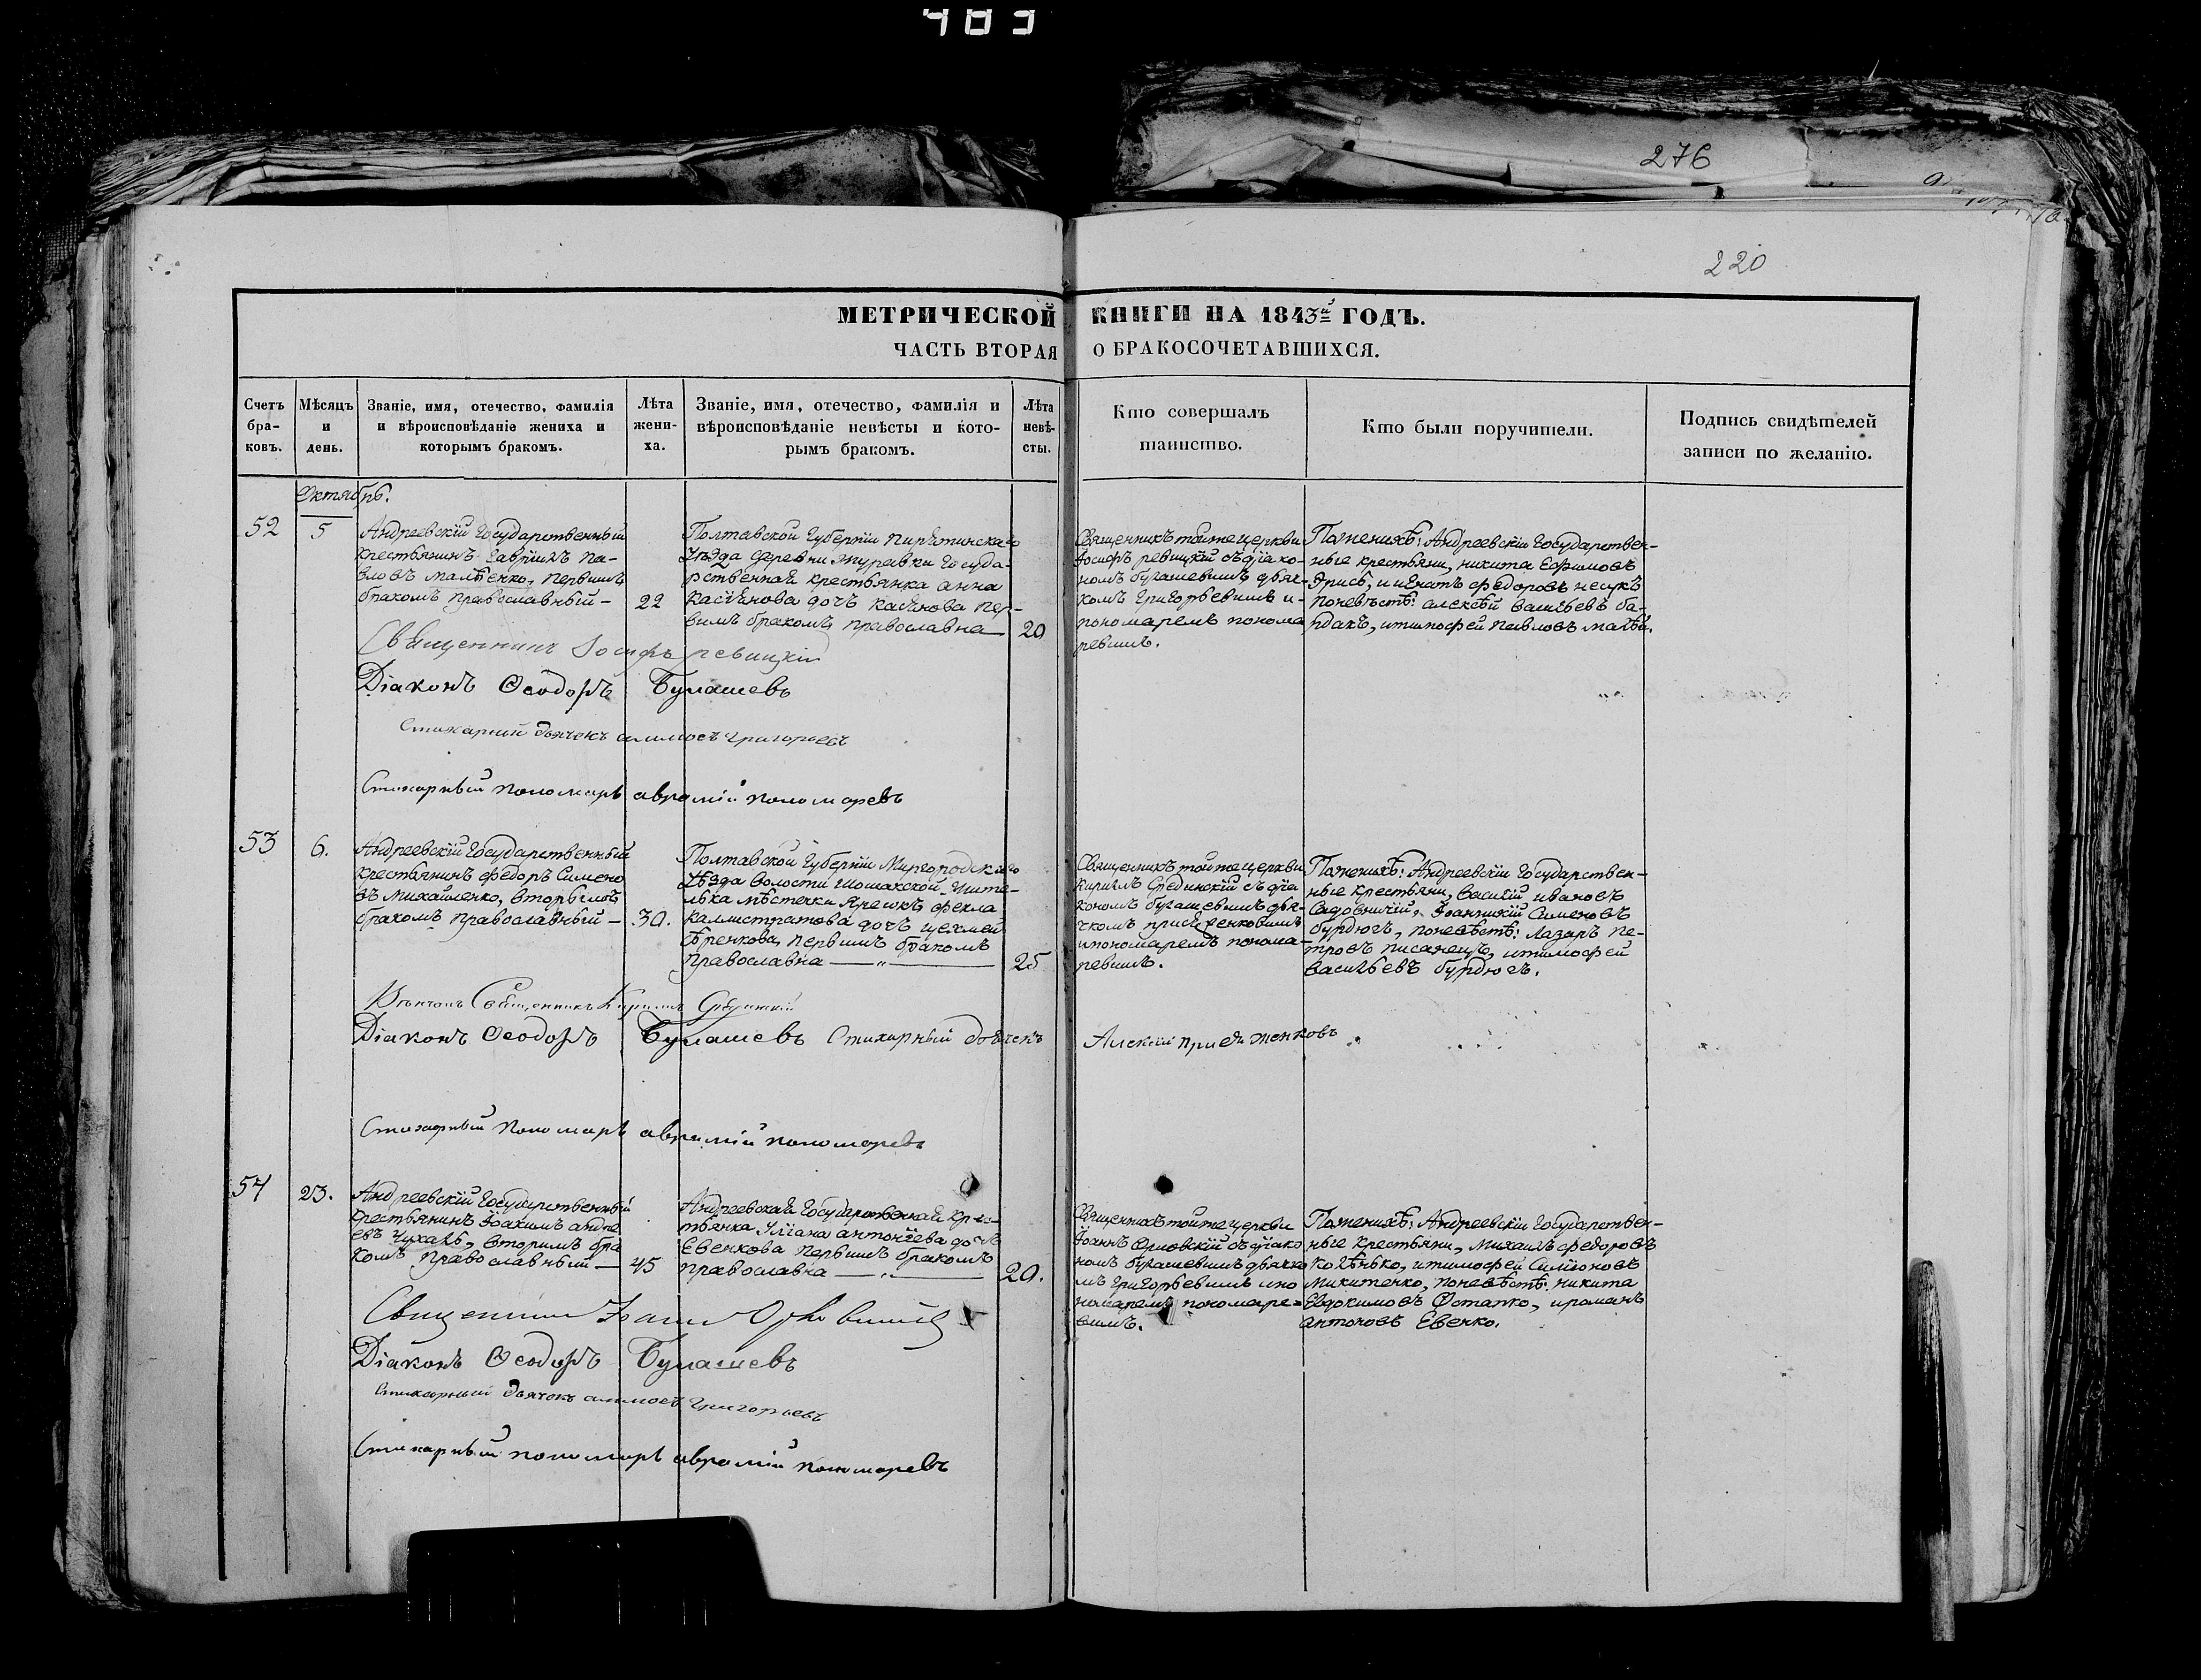 403
276
220
МЕТРИЧЕСКОЙ КНИГИ НА 1843й ГОДЪ.
ЧАСТЬ ВТОРАЯ О БРАКОСОЧЕТАВШИХСЯ.
Счетъ бра-ковъ.
Мѣсяцъ и день.
Званіе, имя, отечество, фамилія и вѣроисповѣданіе жениха и которымъ бракомъ.
Лѣта жени-ха.
Званіе, имя, отечество, фамилія и вѣроисповѣданіе невѣсты и кото-рымъ бракомъ.
Лѣта невѣ-сты.
Кто совершалъ таинство.
Кто были поручители.
Подпись свидѣтелей записи по желанію.
Октябрь.
52
5
Андреевскій Государственный
крестьянинъ Гавріилъ Па-
вловъ Малѣенко, первимъ
бракомъ православный —
22
Полтавской Губерніи Пирятинскаго
Уѣзда деревни Журавки Госуда-
рственная крестьянка Анна
Касіянова дочъ Касянова пер-
вимъ бракомъ православна —
20
Священникъ тойже церкви
Іосифъ Ревицкій съ діако-
номъ Булашевимъ дьяч-
комъ Григорьевимъ и
пономаремъ понома
ревимъ.
Поженихѣ: Андреевскіи Государствен-
ные крестьяни, Никита Ефимовъ
и Игнатъ Федоровъ
поневѣстѣ: Алексѣй Васильевъ ба-
ндакъ, итимофей Павловъ малѣй.
Священникъ Іосифъ Ревицкій
Діаконъ Ѳеодоръ Булашевъ
Стихарный дьячекъ Григорьевъ
Стихарный пономарь аврамій пономаревъ
53
6.
Андреевскій Государственный
крестьянинъ Федоръ Симено
въ Михайленко, вторымъ
бракомъ православный —
30.
Полтавской Губерніи Миргородскаго
Уѣзда волости Шошакской жите-
лька мѣстечки Яресокъ Фекла
Каллистратова дочъ
первимъ бракомъ
православна — „ —
25
Священникъ тойже церкви
Кирилъ Срединскій съ діа
кономъ булашевимъ дья-
чкомъ
ипономаремъ понома-
ревимъ.
Поженихѣ: Андреевскіи Государствен-
ные крестьяни, Василій Ивановъ
Садовничій, Іоанникій Сименовъ
бурдюгъ, поневѣстѣ: Лазаръ Пе-
тровъ Писанецъ, итимофей
Васильевъ бурдюгъ.
Вѣнчалъ Священникъ Кирилъ Срединскій
Діаконъ Ѳеодоръ Булашевъ Стихарный дьячекъ Алексій
Стихарный пономарь аврамій пономаревъ
54
23.
Андреевскій Государственный
крестьянинъ Іоакимъ Андре
евъ Чухакь, вторимъ бра
комъ православный —
45
Андреевская Государственная крес-
тьянка Уліана Антоніева дочъ
Евенкова первимъ бракомъ
православна — „ —
20.
Священникъ тойже церкви
Іоаннъ Орловскій съ діако
номъ булашевимъ дьячко
мъ Григорьевимъ ипо
номаремъ пономаре-
вимъ.
Поженихѣ: Андреевскіи Государствен-
ные крестьяни, Михаилъ Федоровъ
Колѣнько, итимофей Симіоновъ
Микитенко, поневѣстѣ: Никита
Евдокимовъ Остапко, ироманъ
Антоновъ Евенко.
Священникъ Іоаннъ Орловскій
Діаконъ Ѳеодоръ Булашевъ
Стихарный дьячокъ Григорьевъ
Стихарный пономарь аврамій пономаревъ